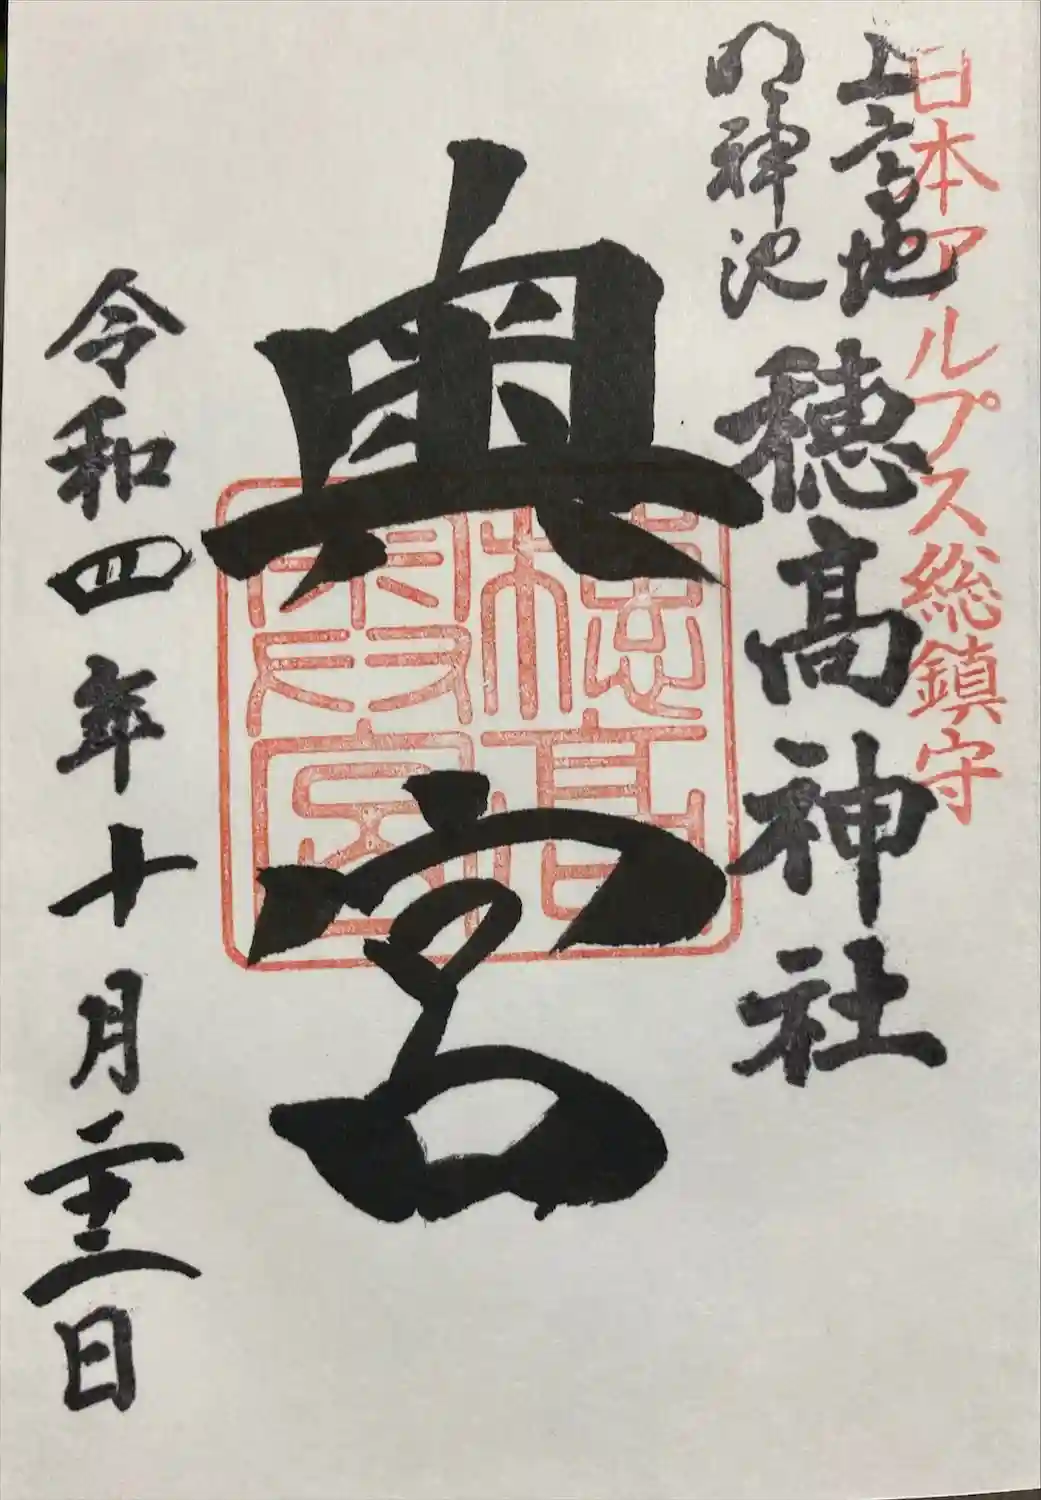 日本アルプス総鎮守
上高地
明神池
穂高神社
奥宮
穂高奥宮
令和四年十月二十二日